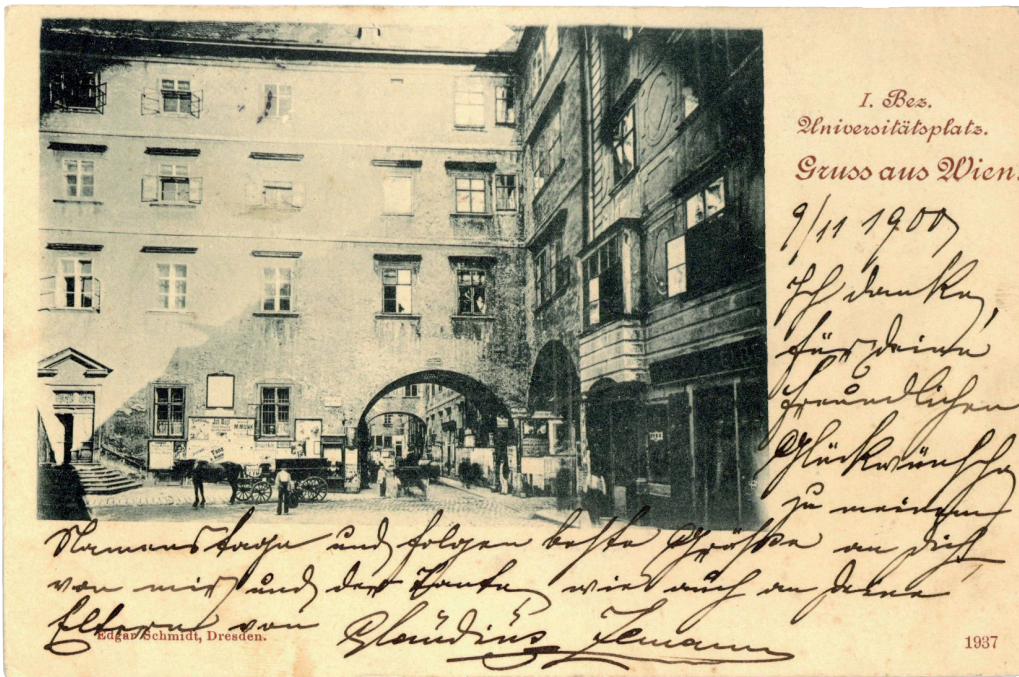 I. Bez.
Universitätsplatz.
Gruss aus Wien.
9/11 1900
Ich danke
für deine
freundlichen
Glückwünsche
zu meinem
Namenstage und folgen beste Grüße an dich
von mir und der Tante, wie auch an deine
Eltern von Claudius
Edgar Schmidt, Dresden.
1937